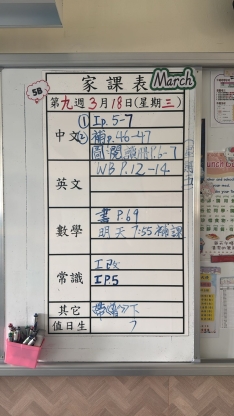 5B
家課表
March
第九週3月18日(星期三)
中文
① Ip.5-7
② 補p.46-47
英文
WB P.12-14
數學
書 P.69
明天 7:55補課
常識
I改
I P.5
其它
值日生
7